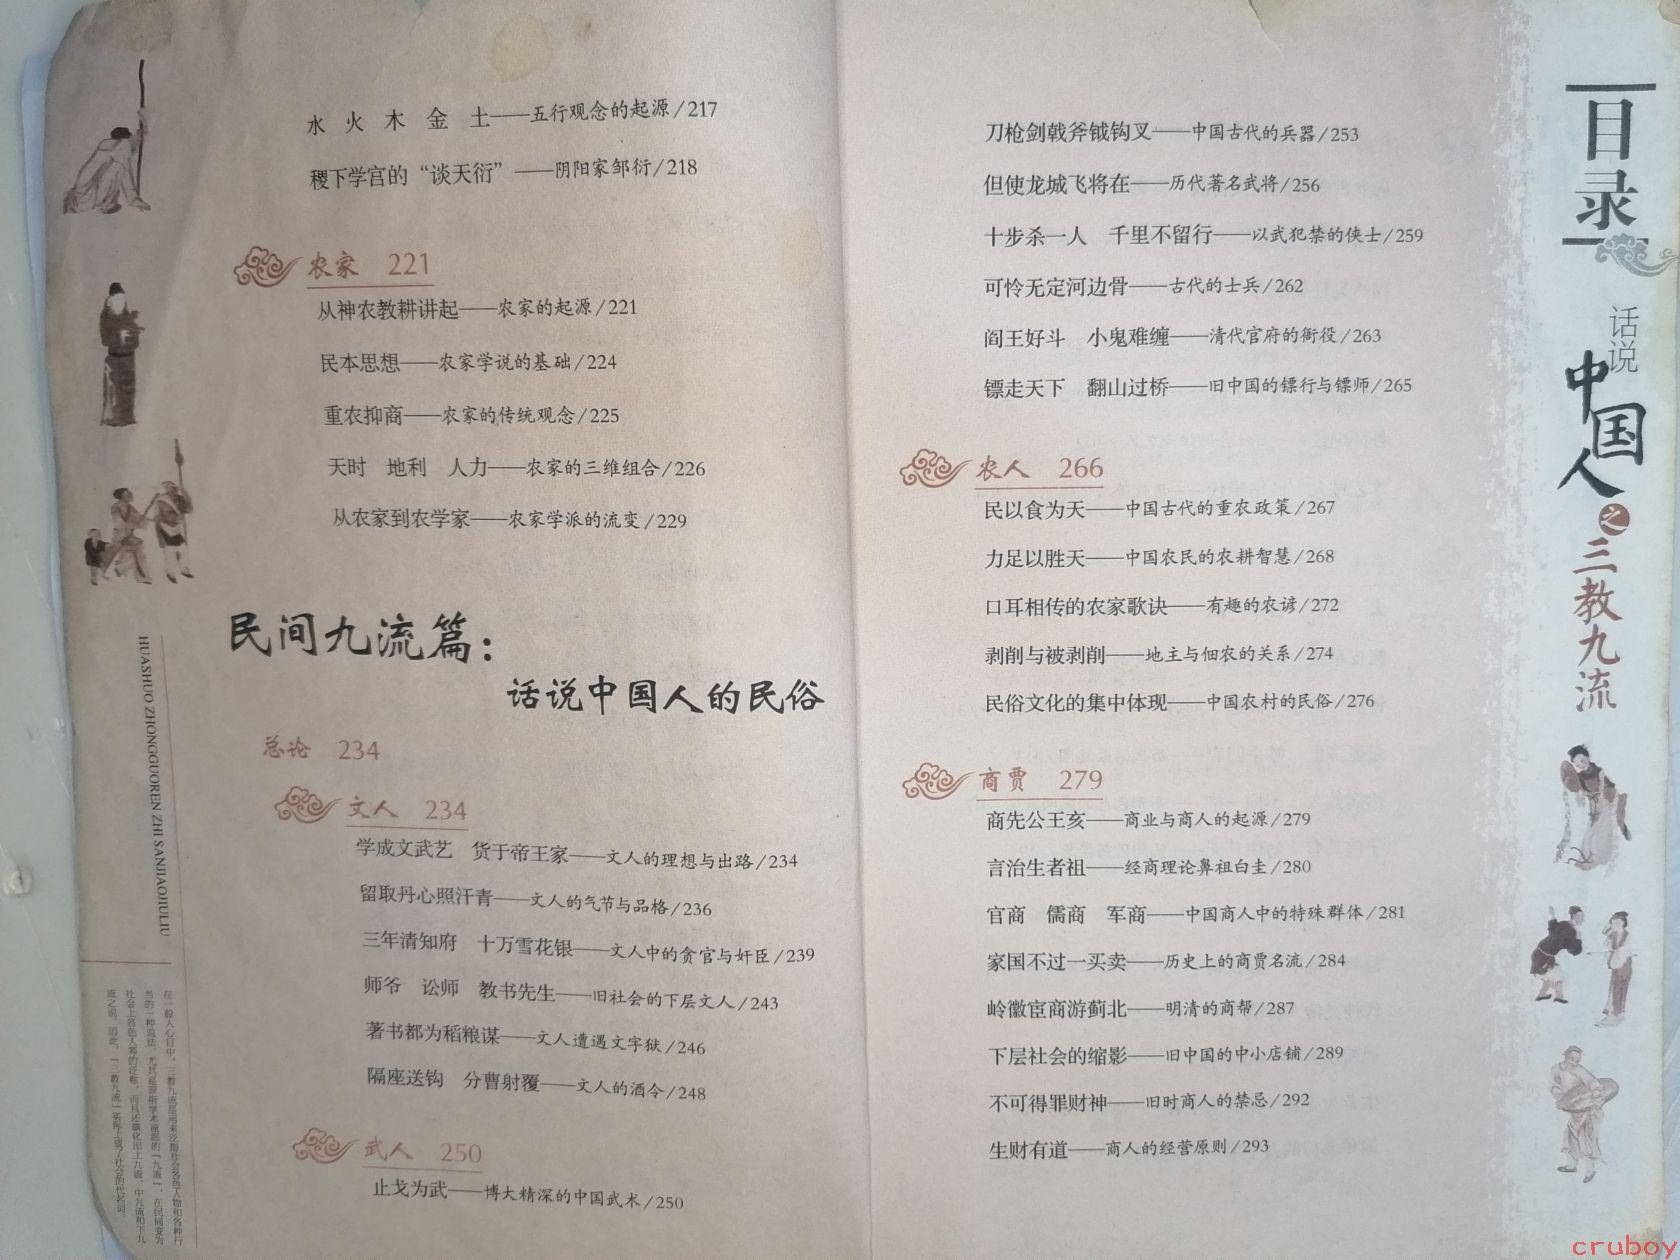 水 火 木 金 土——五行观念的起源/217
稷下学宫的“谈天衍”——阴阳家邹衍/218
农家 221
从神农教耕讲起——农家的起源/221
民本思想——农家学说的基础/224
重农抑商——农家的传统观念/225
天时 地利 人力——农家的三维组合/226
从农家到农学家——农家学派的流变/229
民间九流篇：
话说中国人的民俗
总论 234
文人 234
学成文武艺 货于帝王家——文人的理想与出路/234
留取丹心照汗青——文人的气节与品格/236
三年清知府 十万雪花银——文人中的贪官与奸臣/239
师爷 讼师 教书先生——旧社会的下层文人/243
著书都为稻粮谋——文人遭遇文字狱/246
隔座送钩 分曹射覆——文人的酒令/248
武人 250
止戈为武——博大精深的中国武术/250
HUASHUO ZHONGGUOREN ZHI SANJIAOJIULIU
在一般人心目中，三教九流是用来泛指社会各色人物和各种行
当的一种说法。尤其是原指学术流派的「九流」，在民间变为
社会上各色人等的泛称，而且还演化出上九流、中九流和下九
流之说。因此，「三教九流」实际上成了社会的代名词。
刀枪剑戟斧钺钩叉——中国古代的兵器/253
但使龙城飞将在——历代著名武将/256
十步杀一人 千里不留行——以武犯禁的侠士/259
可怜无定河边骨——古代的士兵/262
阎王好斗 小鬼难缠——清代官府的衙役/263
镖走天下 翻山过桥——旧中国的镖行与镖师/265
农人 266
民以食为天——中国古代的重农政策/267
力足以胜天——中国农民的农耕智慧/268
口耳相传的农家歌诀——有趣的农谚/272
剥削与被剥削——地主与佃农的关系/274
民俗文化的集中体现——中国农村的民俗/276
商贾 279
商先公王亥——商业与商人的起源/279
言治生者祖——经商理论鼻祖白圭/280
官商 儒商 军商——中国商人中的特殊群体/281
家国不过一买卖——历史上的商贾名流/284
岭徽宦商游蓟北——明清的商帮/287
下层社会的缩影——旧中国的中小店铺/289
不可得罪财神——旧时商人的禁忌/292
生财有道——商人的经营原则/293
目录
话说
中国人
之
三教九流
cruboy